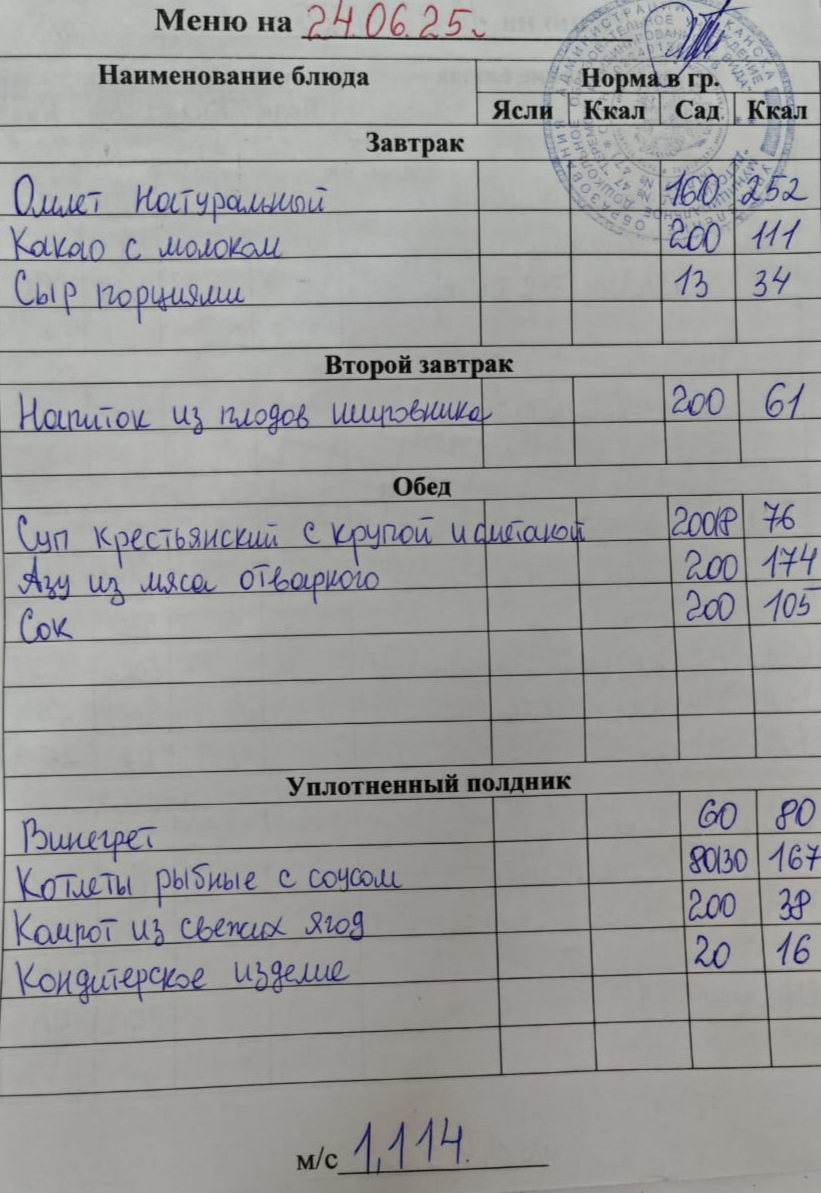 Меню на 24.06.25г
Наименование блюда Норма в гр.
Ясли Ккал Сад Ккал
Завтрак
Омлет натуральный 160 252
Какао с молоком 200 111
Сыр порциями 13 34
Второй завтрак
Напиток из плодов шиповника 200 61
Обед
Суп крестьянский с крупой и сметаной 200/8 76
Азу из мяса отварного 200 174
Сок 200 105
Уплотненный полдник
Винегрет 60 80
Котлеты рыбные с соусом 80/30 167
Компот из свежих ягод 200 38
Кондитерское изделие 20 16
м/с 1,114.